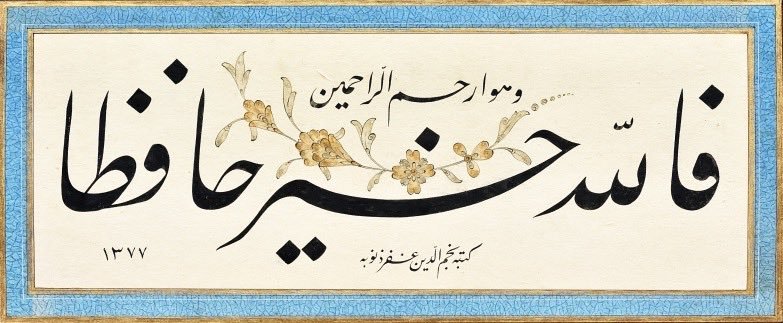 فالله خير حافظا
وهو ارحم الراحمين
كتبه نجم الدين غفر ذنوبه
١٣٧٧